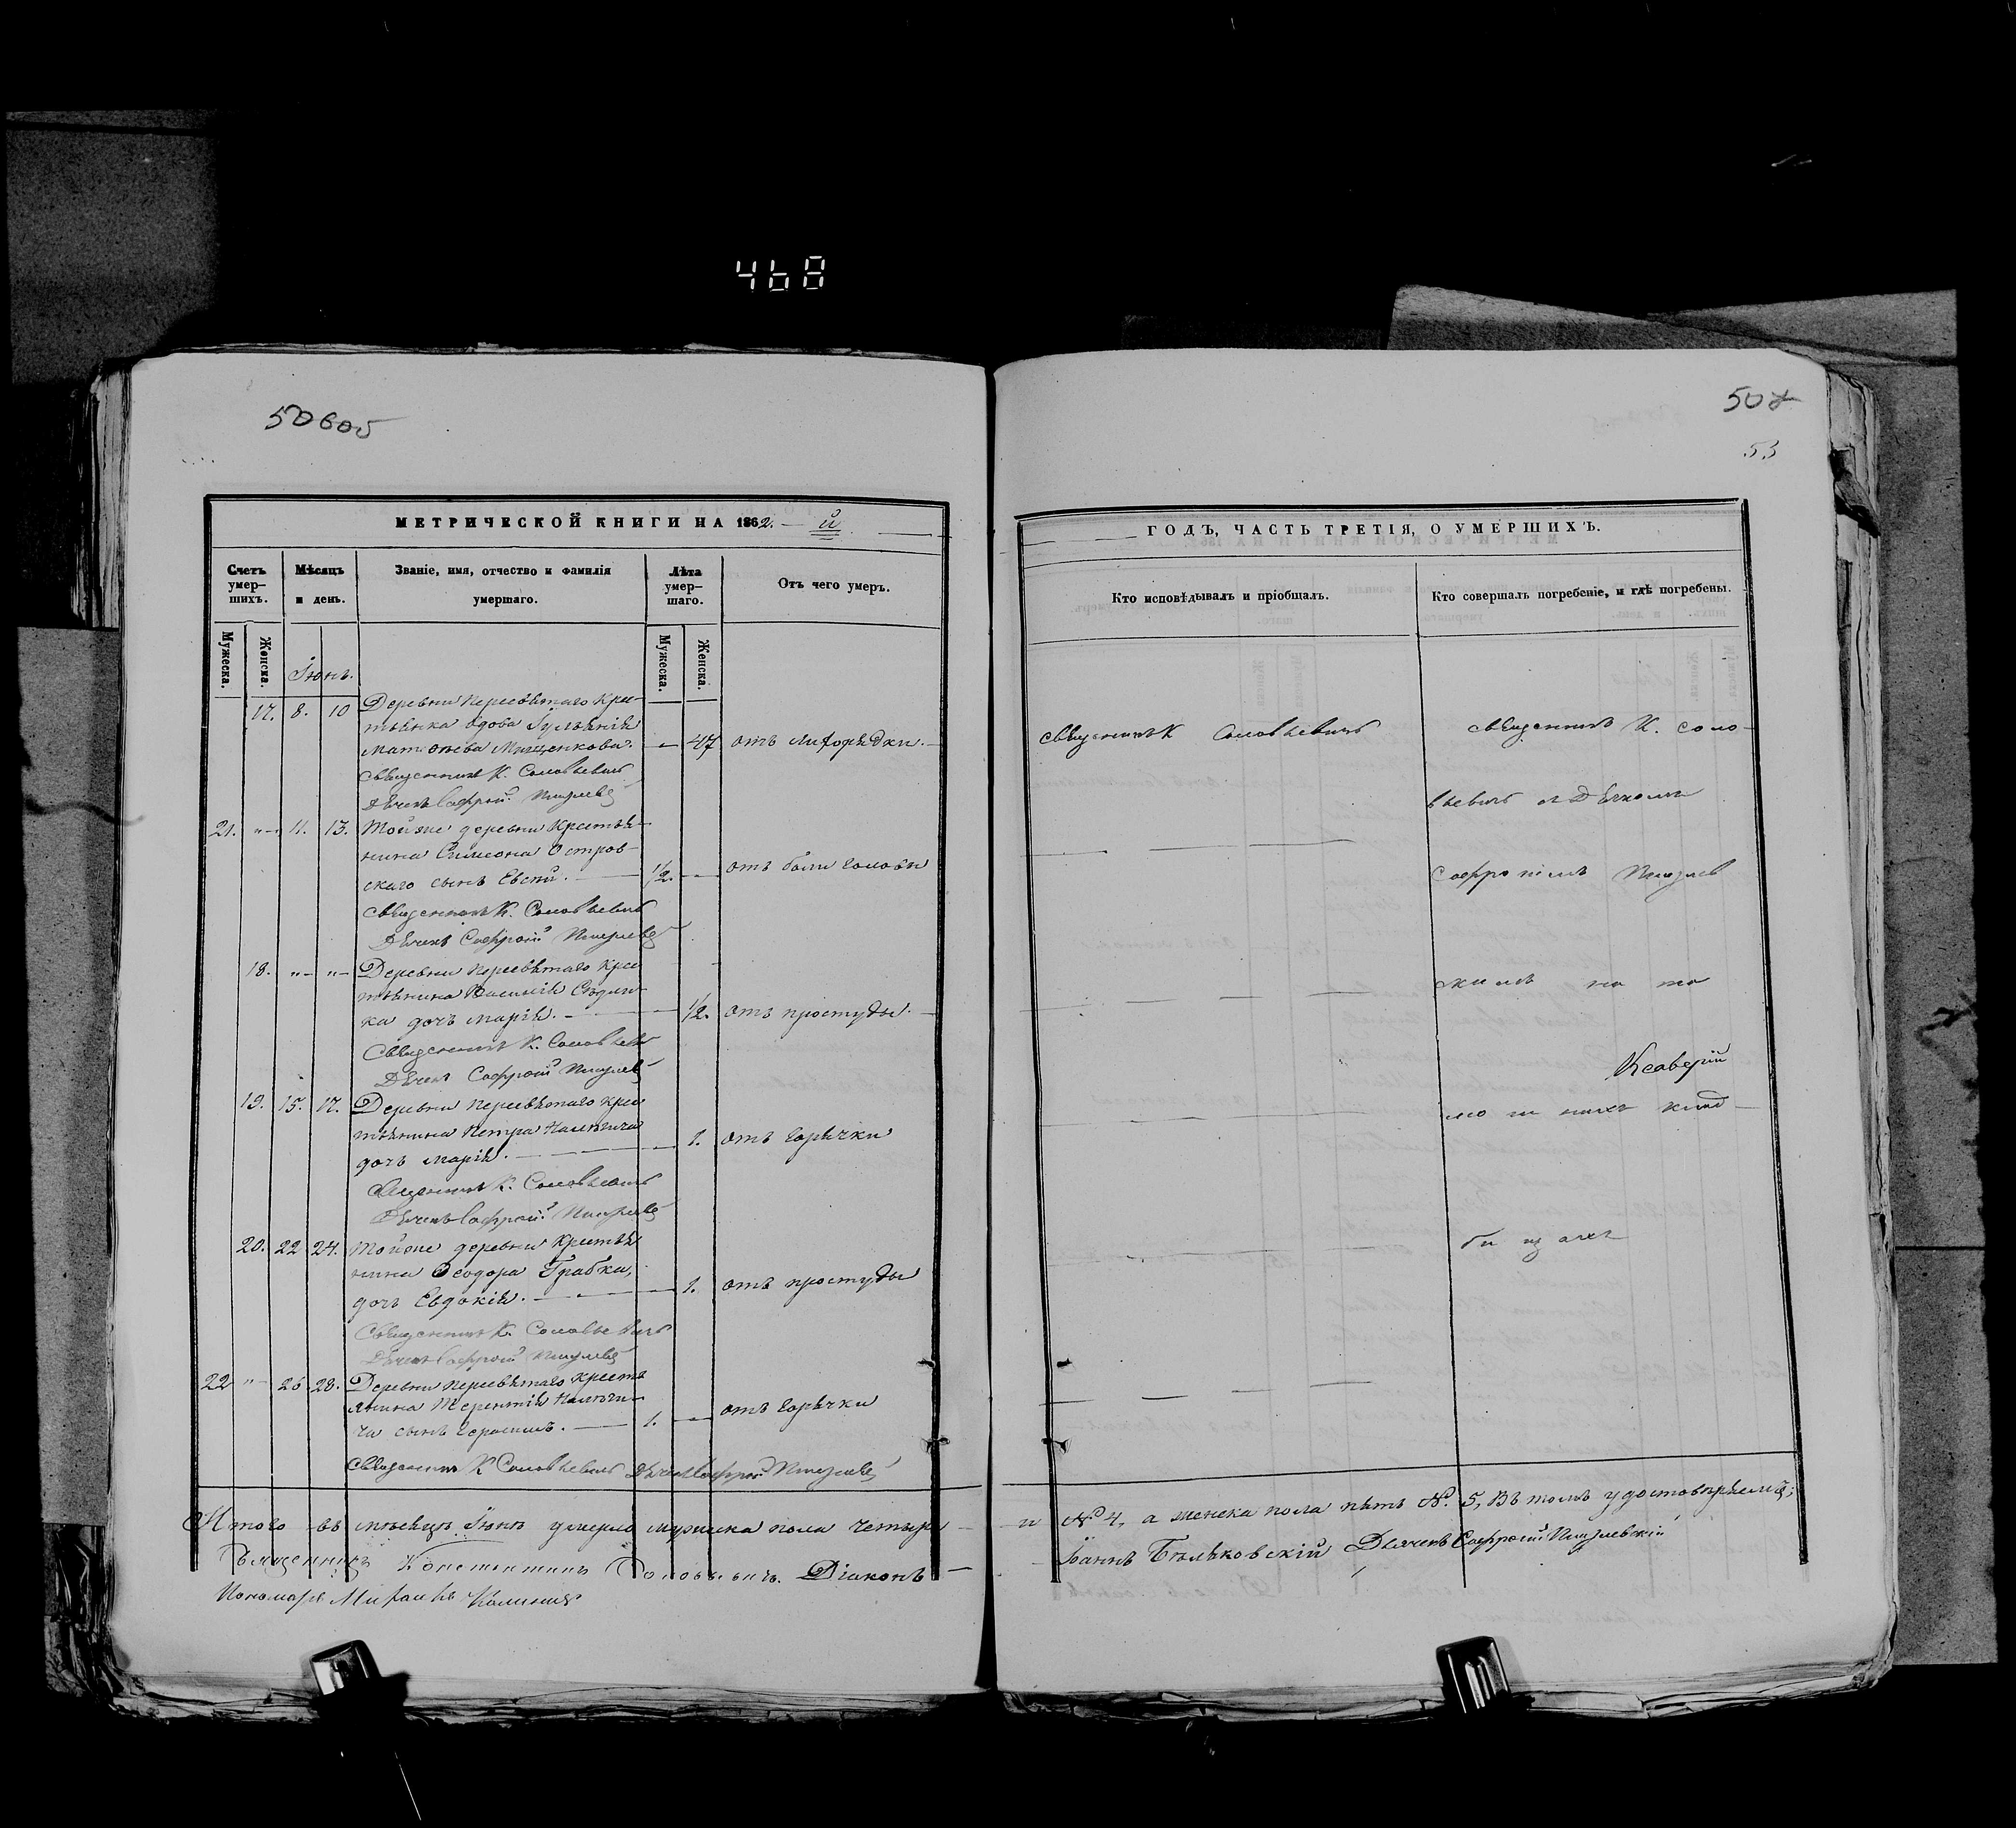 468
50 боб
507
53
МЕТРИЧЕСКОЙ КНИГИ НА 1862. — й
Счетъ умер-шихъ.
Мѣсяцъ и день.
Званіе, имя, отчество и фамилія умершаго.
Лѣта умер-шаго.
Отъ чего умеръ.
Мужеска.
Женска.
Мужеска.
Женска.
Іюнь.
17. 8. 10 Деревни Пересѣтаго Кре-
стьянка вдова Іуліянія
Матѳеева Мищенкова. — 47 отъ лихорадки.
Священникъ К. Соловьевичъ
Дьячекъ Софрон.
21. 11. 13. Тойже деревни Крестья-
нина Симеона Остров-
скаго сынъ Евсей. 1/2. — отъ боли головы
Священникъ К. Соловьевичъ
Дьячекъ Софроній
18. Деревни Пересѣтаго Кре
стьянина Василія
ка дочь Марія. — 1/2. отъ простуды.
Священникъ К. Соловьевичъ
Дьячекъ Софроній
19. 15. 17. Деревни Пересѣтаго Крес
тьянина Петра
дочь Марія. — 1. отъ горячки
Священникъ К. Соловьевичъ
Дьячекъ Софроній
20. 22 24. Тойже деревни Крестья
нина Ѳеодора Грабка,
дочь Евдокія. — 1. отъ простуды
Священникъ К. Соловьевичъ
Дьячекъ Софроній
22 26. 28. Деревни Пересѣтаго Кресть
янина Терентія
ча сынъ Герасимъ. — 1. — отъ горячки
Священникъ К Соловьевичъ Дьячекъ Софроній
Итого въ мѣсяцѣ Іюнѣ умерло мужеска пола четыре —
Священникъ Константинъ Соловьевичъ. Діаконъ —
Пономарь Михаилъ
ГОДЪ, ЧАСТЬ ТРЕТІЯ, О УМЕРШИХЪ.
Кто исповѣдывалъ и пріобщалъ.
Кто совершалъ погребеніе, и гдѣ погребены.
Священникъ К Соловьевичъ
Священникъ К. Соло-
вьевичъ съ Дьячкомъ
Софроніемъ
Ксаверій
№ 4, а женска пола пять №. 5, Въ томъ удостовѣряемъ;
Іоаннъ Бѣльковскій Дьячекъ Софроній